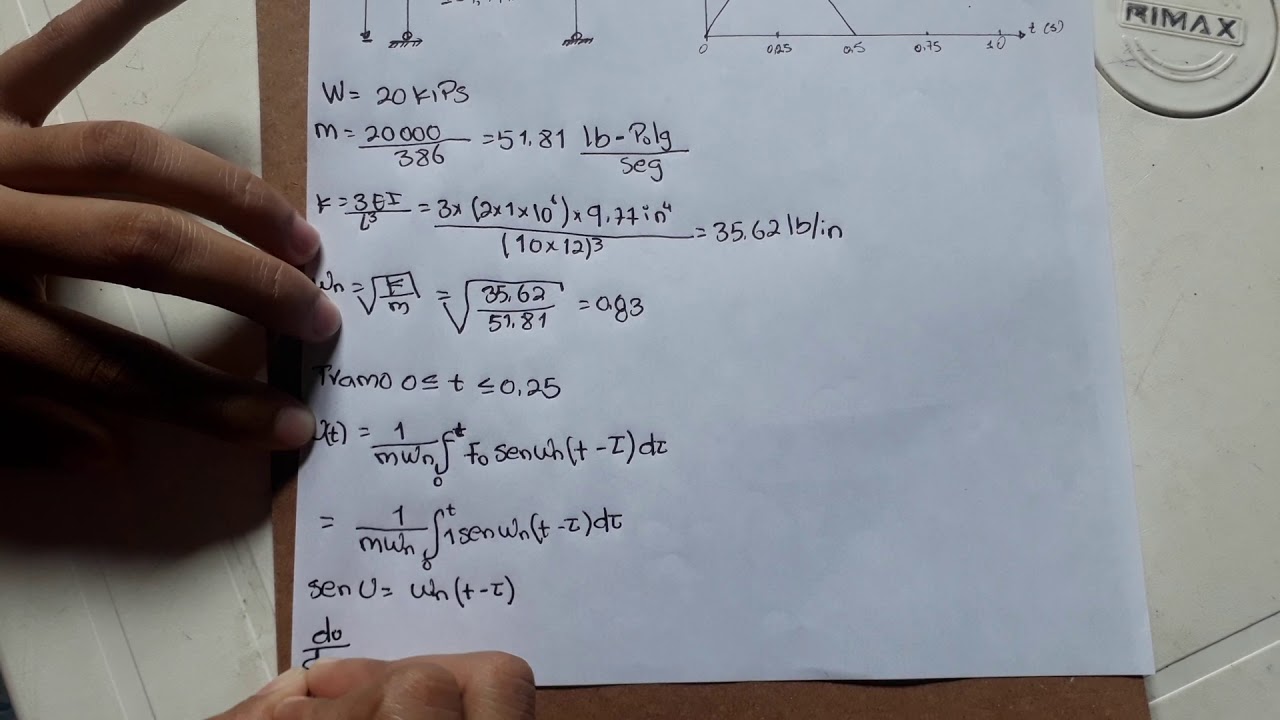 RIMAX
t (s)
0 0.25 0.5 0.75 1.0
W = 20 KIPS
m = 20000/386 = 51.81 lb-Polg/seg
K = 3EI/L³ = 3x(2x1x10⁶)x9.77in⁴/(10x12)³ = 35.62 lb/in
Wn = √K/m = √35.62/51.81 = 0.83
Tramo 0 ≤ t ≤ 0,25
(t) = 1/mWn ∫₀ᵗ Fo senWn(t-τ)dτ
= 1/mWn ∫₀ᵗ 1senWn(t-τ)dτ
sen U = Wn(t-τ)
du